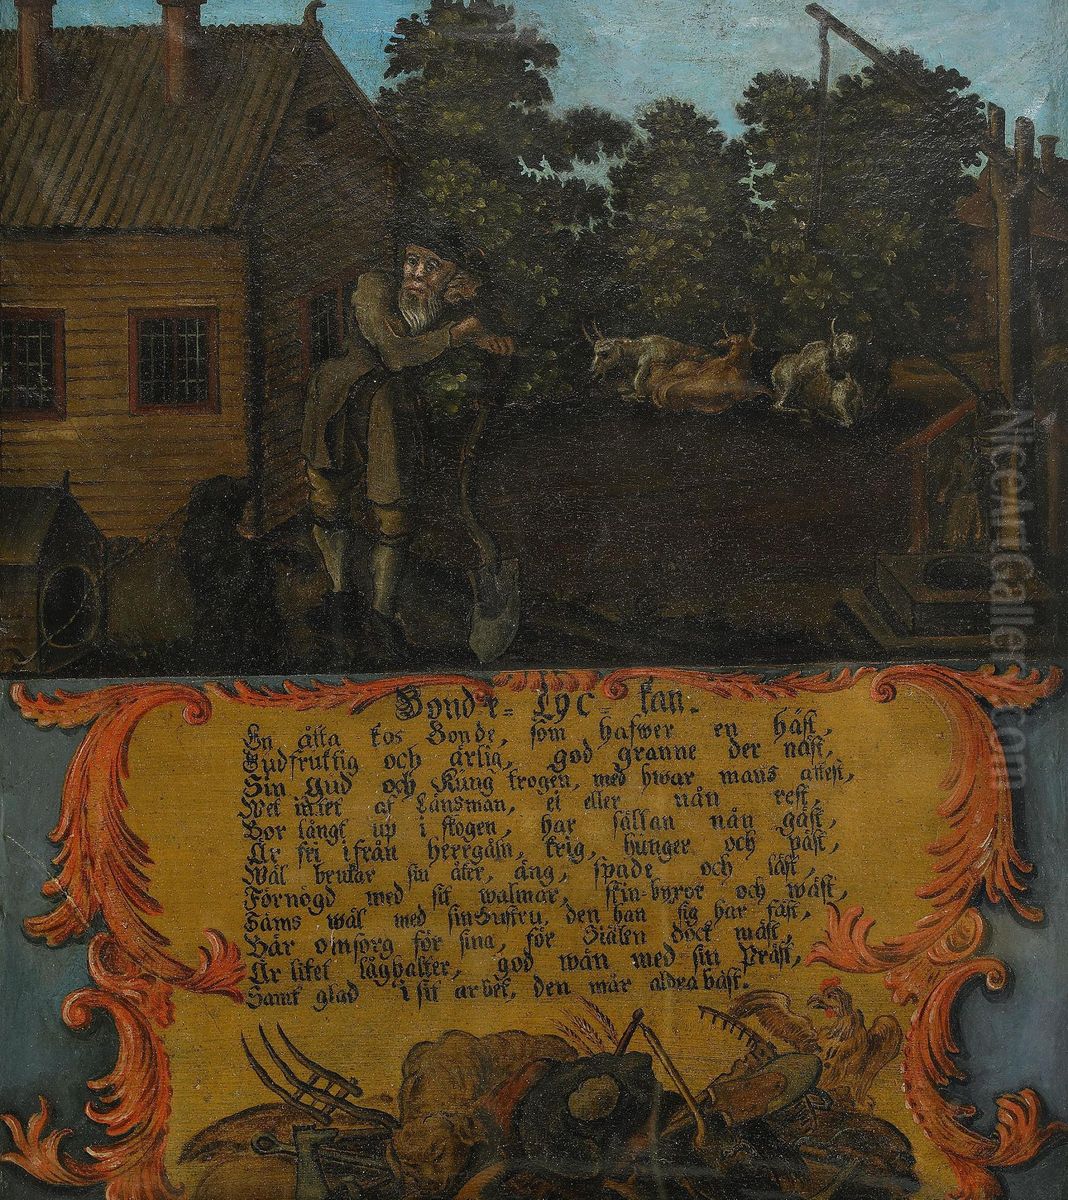 Bonde-Lyc-kan.
En åtta kos Bonde, som hafwer en häst,
Gudfruktig och ärlig, god granne der näst,
Sin Gud och Kung trogen, med hwar mans attest,
Wet intet af Länsman, ei eller nån rest,
Bor långt up i skogen, har sällan nån gäst,
Är fri ifrån herrgåln, krig, hunger och päst,
Wäl brukar sin åker, äng, spade och läst,
Förnögd med sit walmar, skin-byxor och wäst,
Säms wäl med sin Hustru, den han sig har fäst,
Bär omsorg för sina, för Siälen döck mäst,
Är litet låghalter, god wän med sin Präst,
Samt glad i sit arbet, den mår aldra bäst.
NiceArtGallery.com